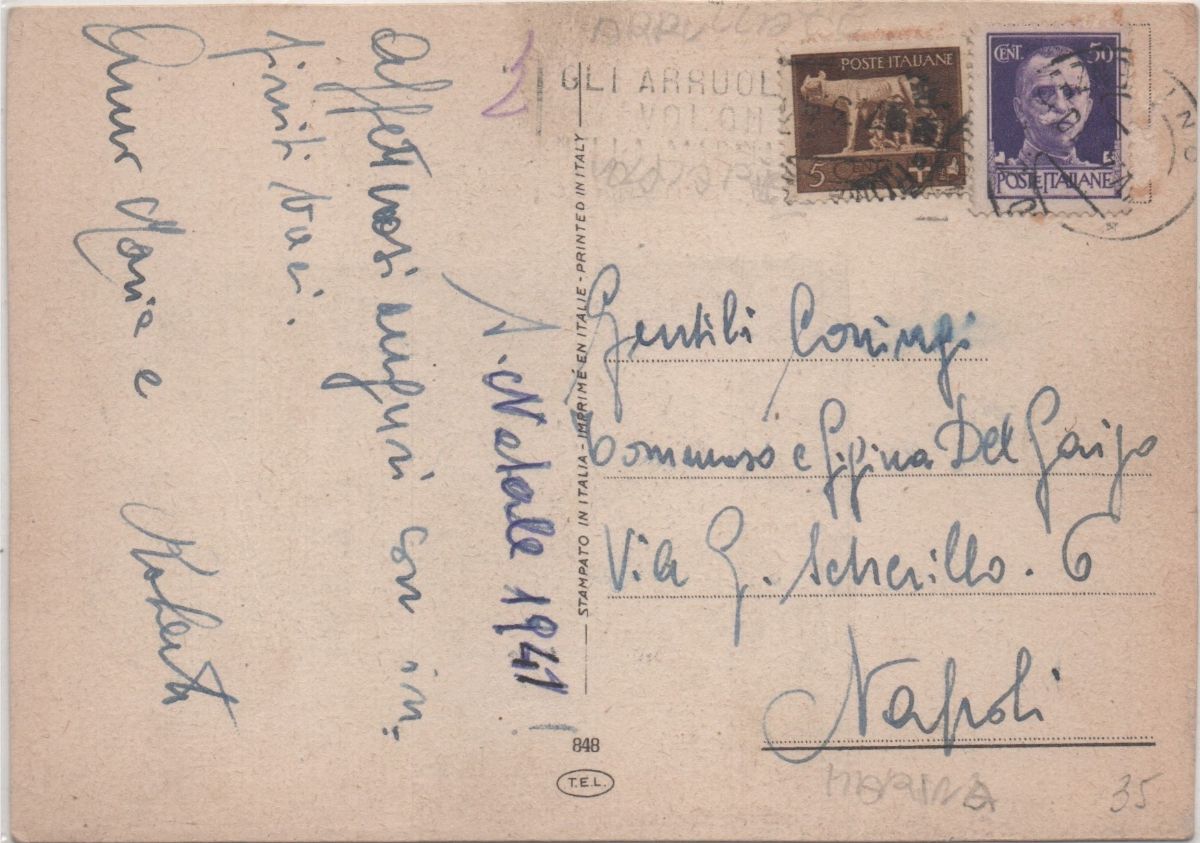 S. Natale 1941
affettuosi auguri con in:
finiti baci.
Maria e
Roberto
STAMPATO IN ITALIA - IMPRIMÉ EN ITALIE - PRINTED IN ITALY
848
T.E.L.
GLI ARRUOL
VOLON
POSTE ITALIANE
5 CENT
CENT. 50
POSTE ITALIANE
Gentili Coniugi
Tommaso e Gigina Del Gaizo
Via G. Scherillo. 6
Napoli
MARINA
35